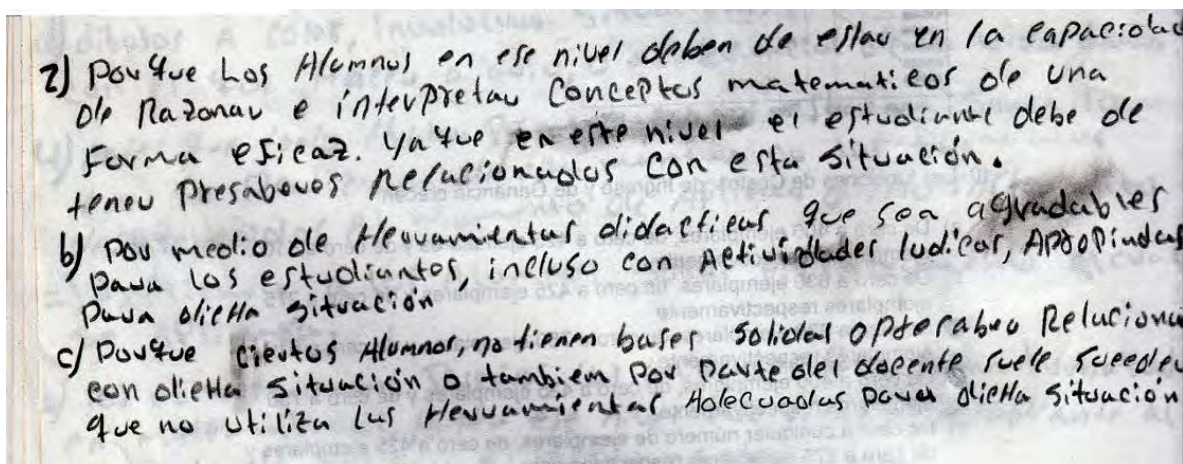 2) Porque Los Alumnos en ese nivel deben de estar en la capacidad
De Razonar e interpretar Conceptos matematicos de una
Forma eficaz. Ya que en este nivel el estudiante debe de
tener Presaberes Relacionados con esta situación.
b) Por medio de Herramientas didacticas que sea agradables
para los estudiantes, incluso con Actividades ludicas, Apropiadas
Para dicha situación
c) Porque ciertos Alumnos, no tienen bases solidas o
con dicha situación o tambien Por Parte del docente suele suceder
que no utiliza las Herramientas Adecuadas para dicha situación